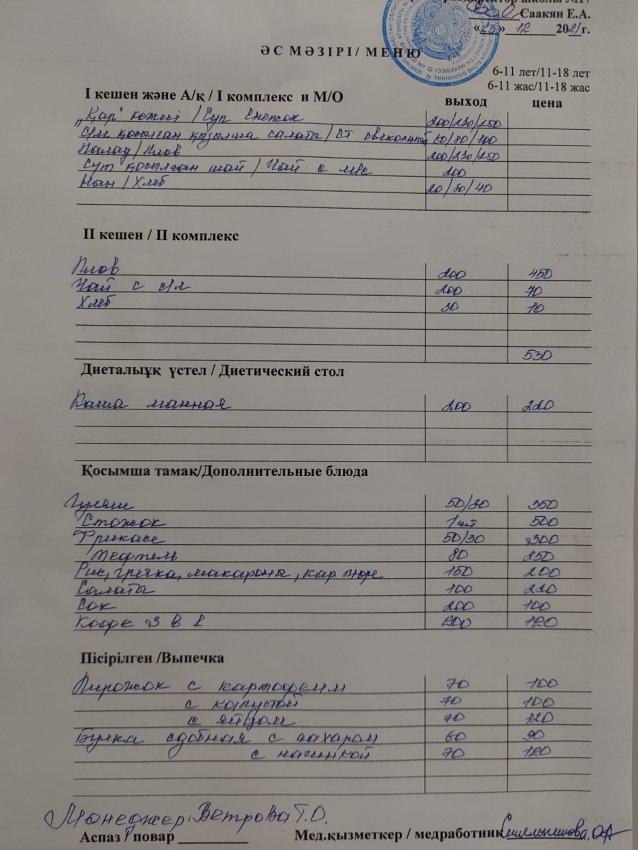 Саакян Е.А.
«23» 12 2021г.
ӘС МӘЗІРІ/ МЕНЮ
6-11 лет/11-18 лет
6-11 жас/11-18 жас
І кешен және А/қ / І комплекс и М/О выход цена
"Қар" көжесі / Суп Снежок 200/230/250
С/м қосылған қызылша салаты / СТ свекольный 60/80/100
Палау/Плов 200/230/250
Сүт қосылған шай / Чай с м/с 200
Нан / Хлеб 20/30/40
ІІ кешен / ІІ комплекс
Плов 200 450
Чай с с/м 200 70
Хлеб 30 10
530
Диеталық үстел / Диетический стол
Каша манная 200 220
Қосымша тамақ/Дополнительные блюда
Гуляш 50/30 350
Стожок 1 шт 500
Фрикасе 50/30 300
Тефтель 80 250
Рис, гречка, макароны, кар пюре 150 200
Салаты 100 220
Сок 200 100
Кофе 3 в 1 200 120
Пісірілген /Выпечка
Пирожок с картофелем 70 100
с капустой 70 100
с яйцом 70 120
Булка сдобная с сахаром 60 90
с начинкой 70 120
Менеджер Ветрова Т.О.
Аспаз / повар Мед.қызметкер / медработник